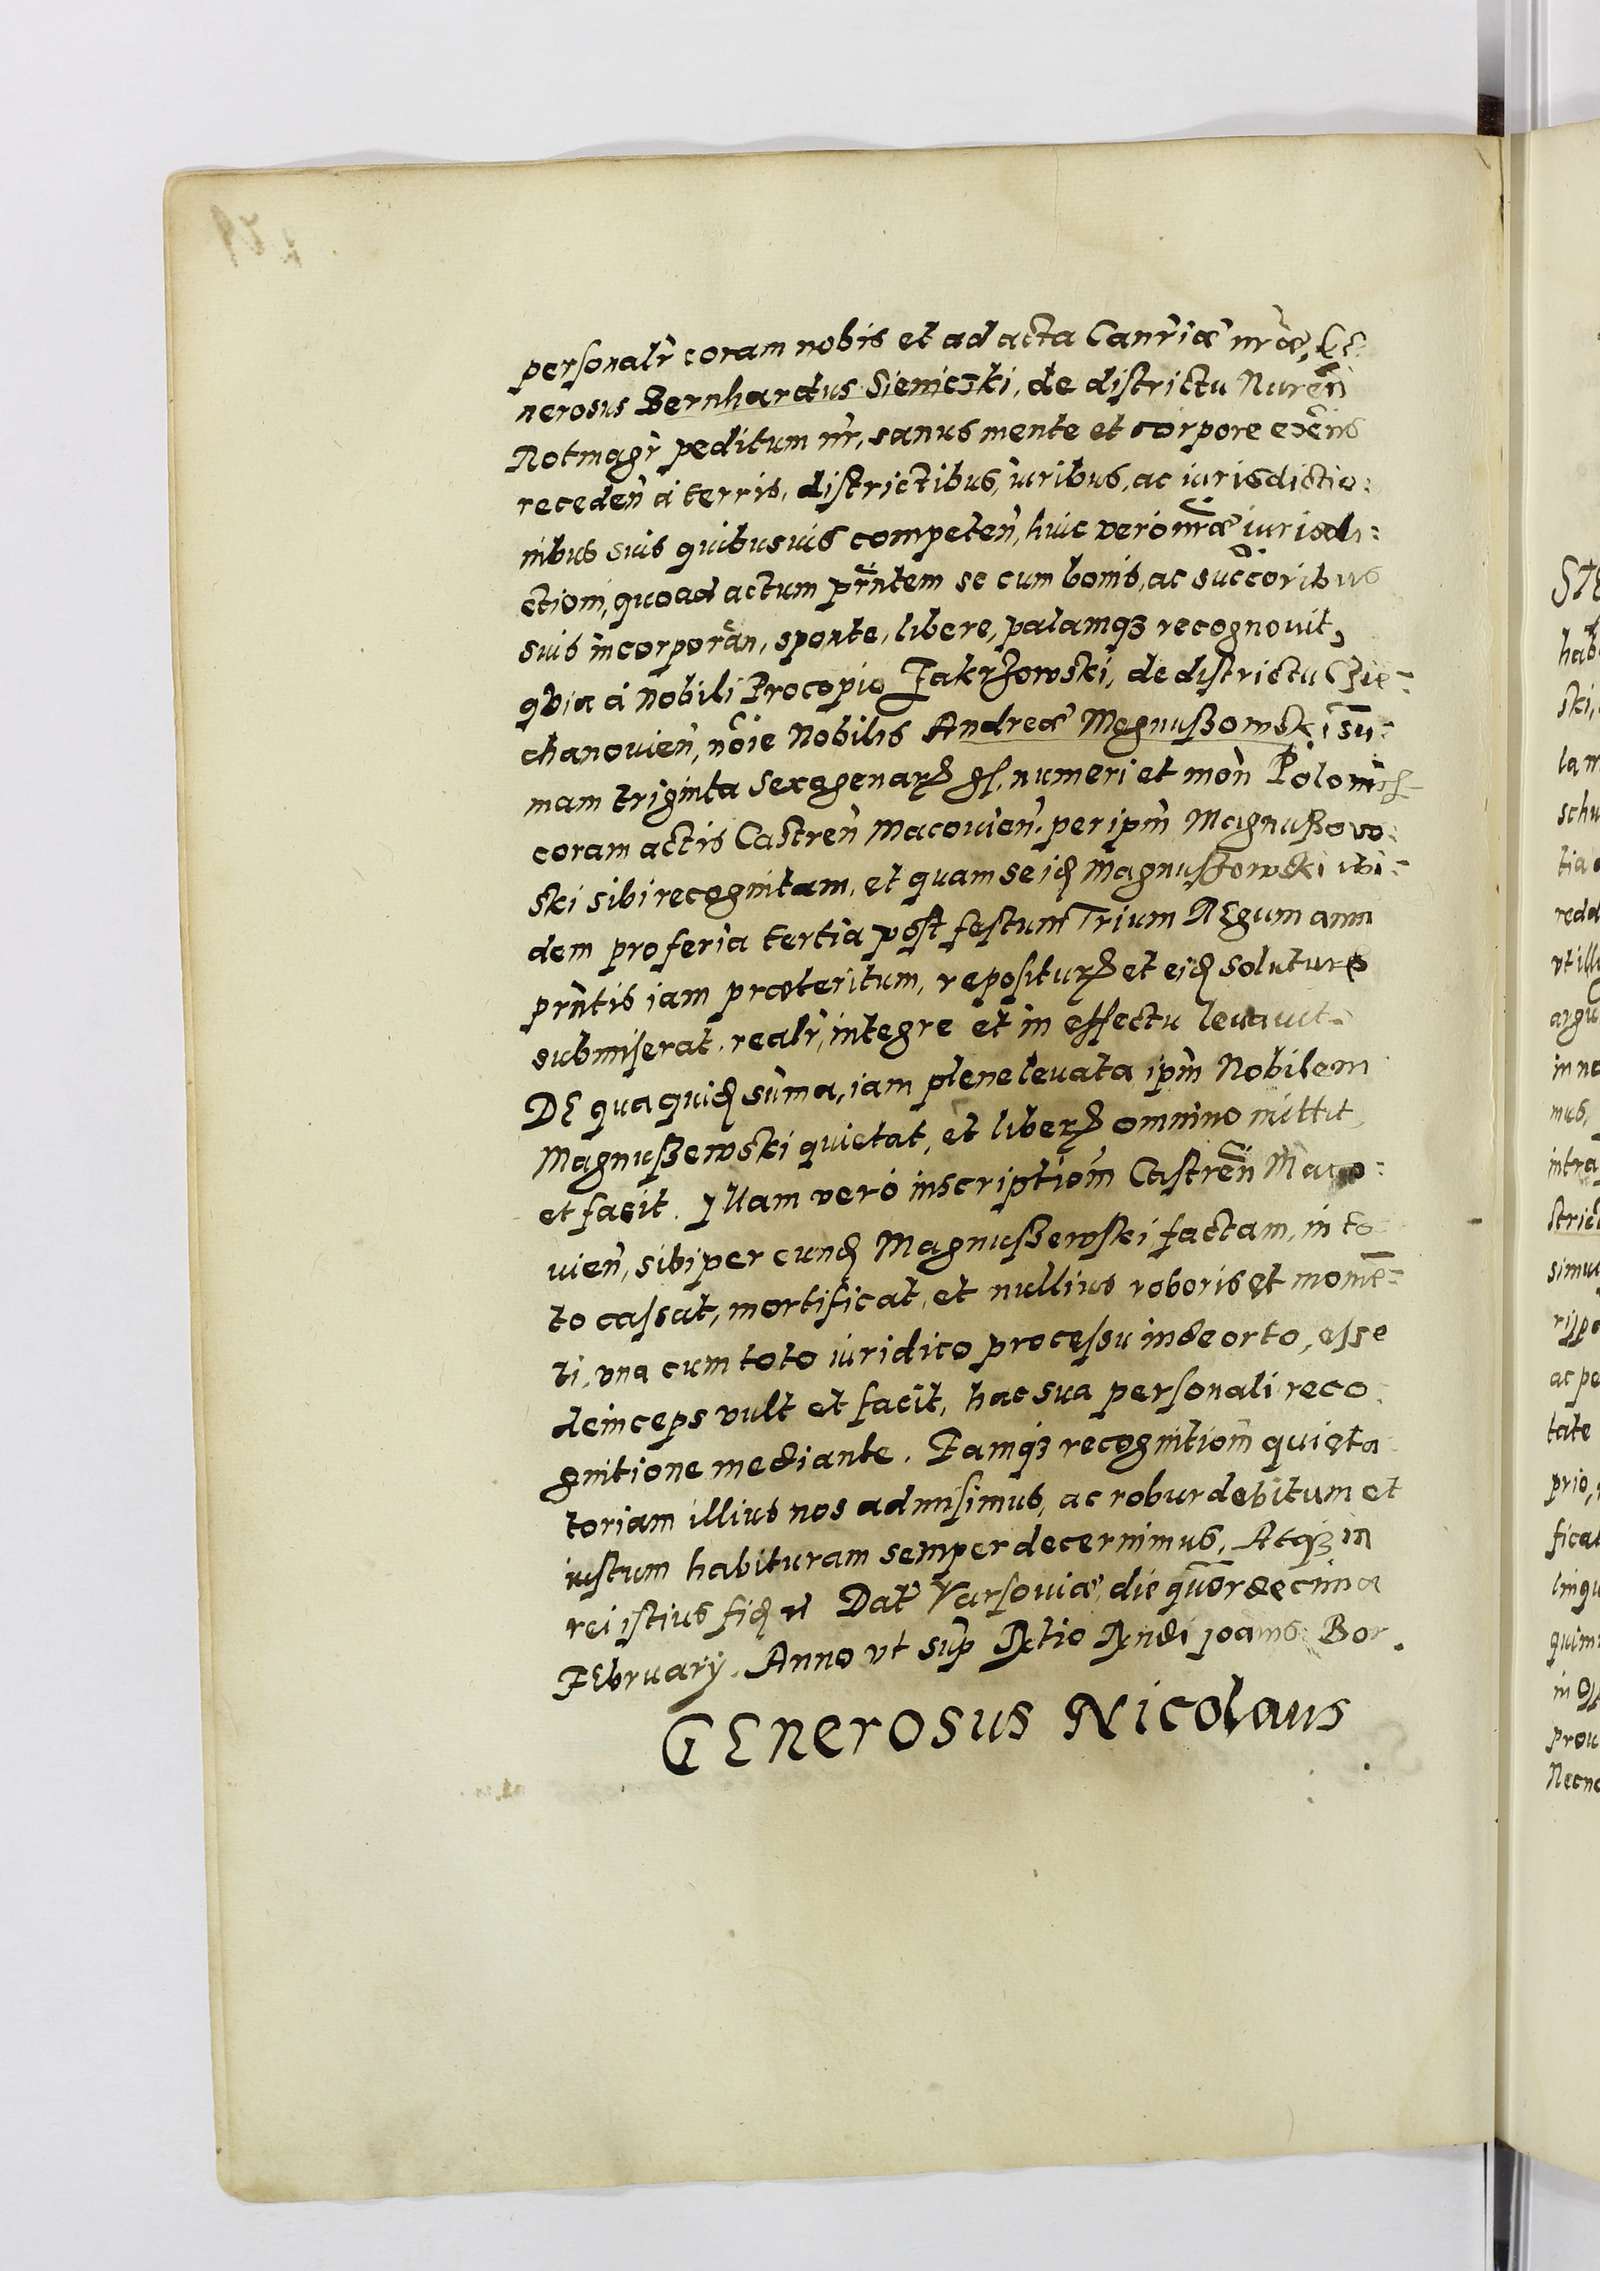 personalr̃ coram nobis et ad acta Canr̃iæ nr̃æ, Ge
nerosus Bernhardus Sieniczki, de districtu Nureñ
Rotmagr̃ peditum nr̃, sanus mente et corpore exẽns
recedeñ à terris, districtibus, iuribus, ac iurisdictio:
nibus suis quibusuis competeñ, huic verò nr̃æ iurisdi:
ctiom̃, quoad actum prñtem se cum bonis, ac succoribus
suis incorporañ, sponte, libere, palamqз recognouit,
quia à Nobili Procopio Jakrzowski, de districtu Czie=
chanouień, nõie Nobilis Andreæ Magnußowski sũ=
mam triginta sexagenarꝝ gſ. numeri et moñ Polonic
coram actis Castreñ Macouieñ. per ipm̃ Magnußow
ski sibi recognitam, et quam se idꝫ Magnußowski ibi=
dem pro feria tertia post festum Trium REgum anni
prñtis iam præteritum, repositurꝝ et eidꝫ soluturꝝ
submiserat, realr̃, integre et in effectu leuauit.
DE qua quidꝫ sũma, iam plene leuata ipm̃ Nobilem
Magnußewski quietat, et liberꝝ omnino mittit
et facit. Illam verò inscriptiom̃ Castreñ Maco:
uieñ, sibi per eundꝫ Magnußewski factam, in to
to cassat, mortificat, et nullius roboris et momẽ=
ti, vna cum toto iuridico processu inde orto, esse
deinceps vult et facit, hac sua personali reco
gnitione mediante. Eamqз recognitiom̃ quieta
toriam illius nos admisimus, ac robur debitum et
iustum habituram semper decernimus, Atqз in
rei istius fidꝫ Dat̃ Varsouiæ, die quor̃decima
FEbruarij. Anno vt sup̃ Rl̃tio Rñdi Joañis Bor.
GENerosus Nicolaus